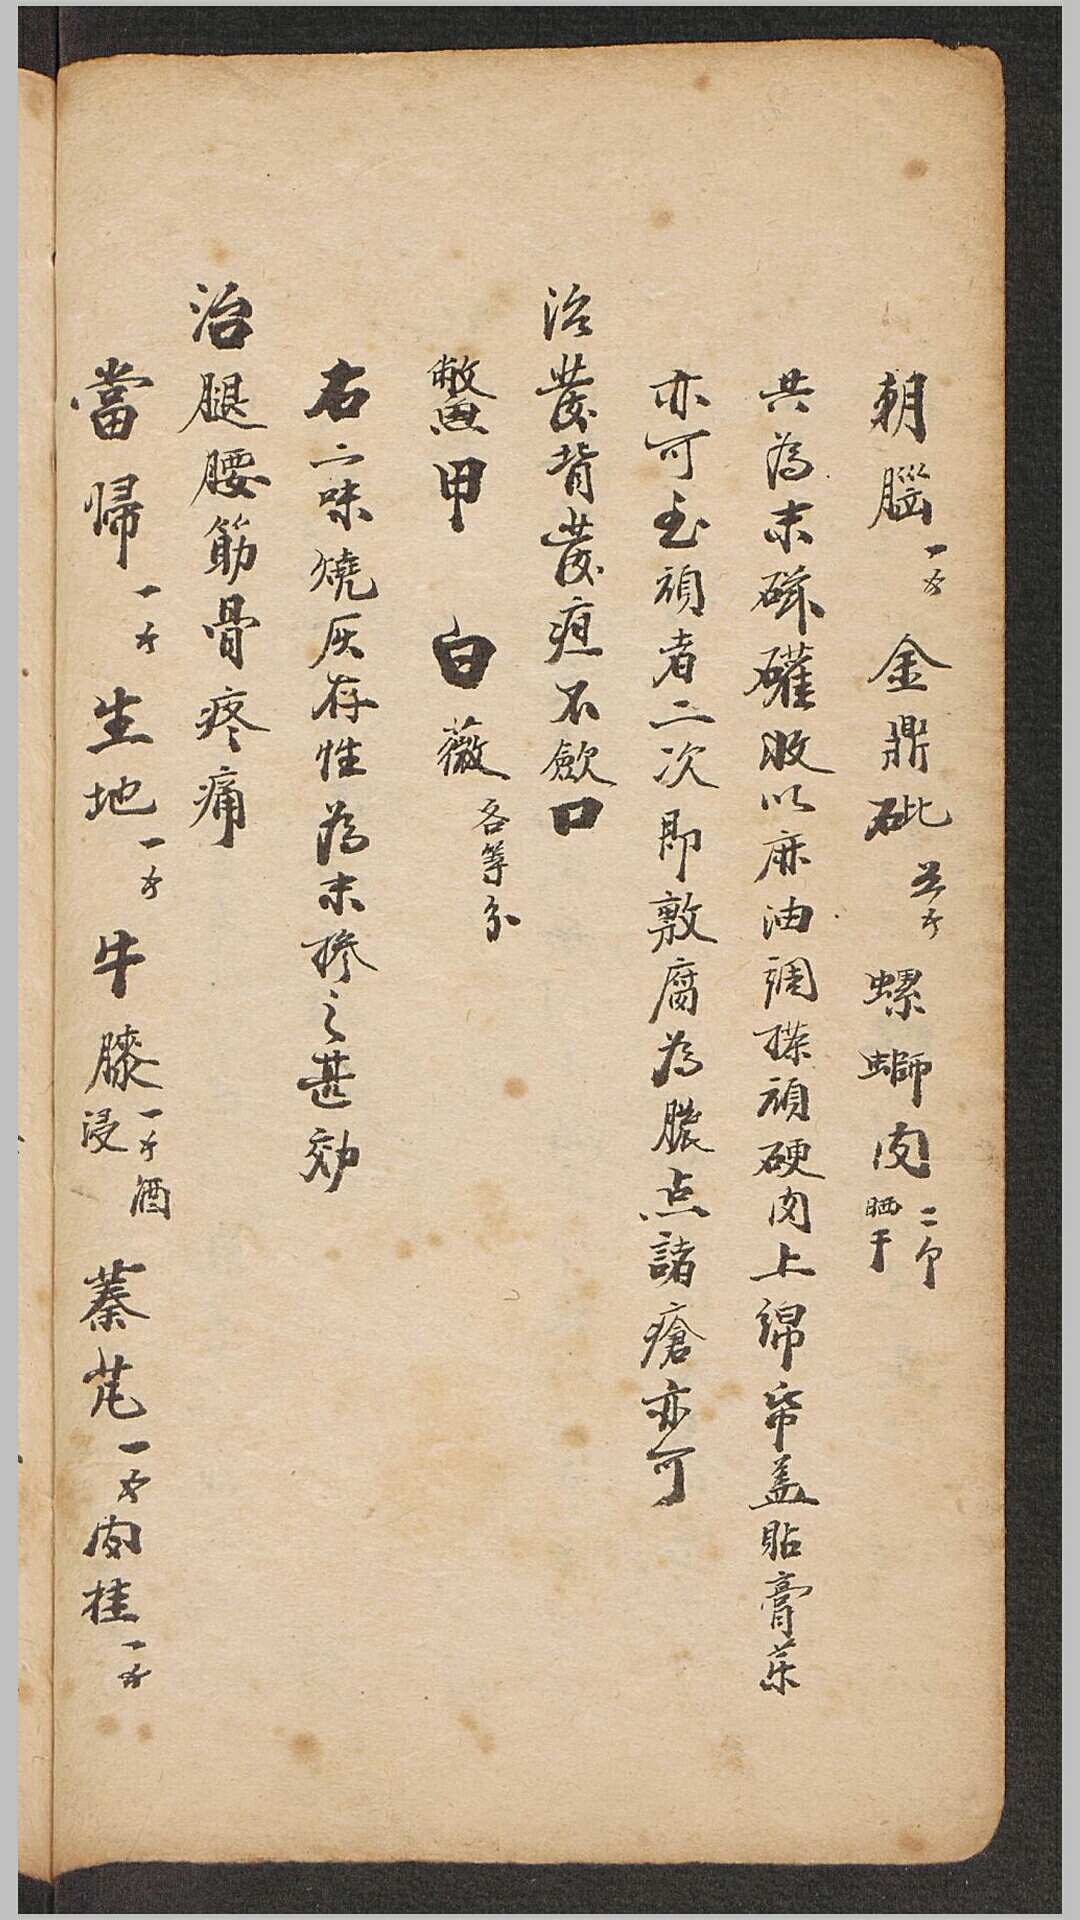 朝腦一才 金鼎砒五才 螺螄肉二个晒干
共為末磁礶收以麻油調搽頑硬肉上綿帋盖貼膏藥
亦可至頑者二次即敷腐為膿点諸瘡亦可
治發背發疽不斂口
鱉甲 白薇各等分
右二味燒灰存性為末摻之甚効
治腿腰筋骨疼痛
當歸一才 生地一才 牛膝一才酒浸 蓁芃一才 肉桂一才